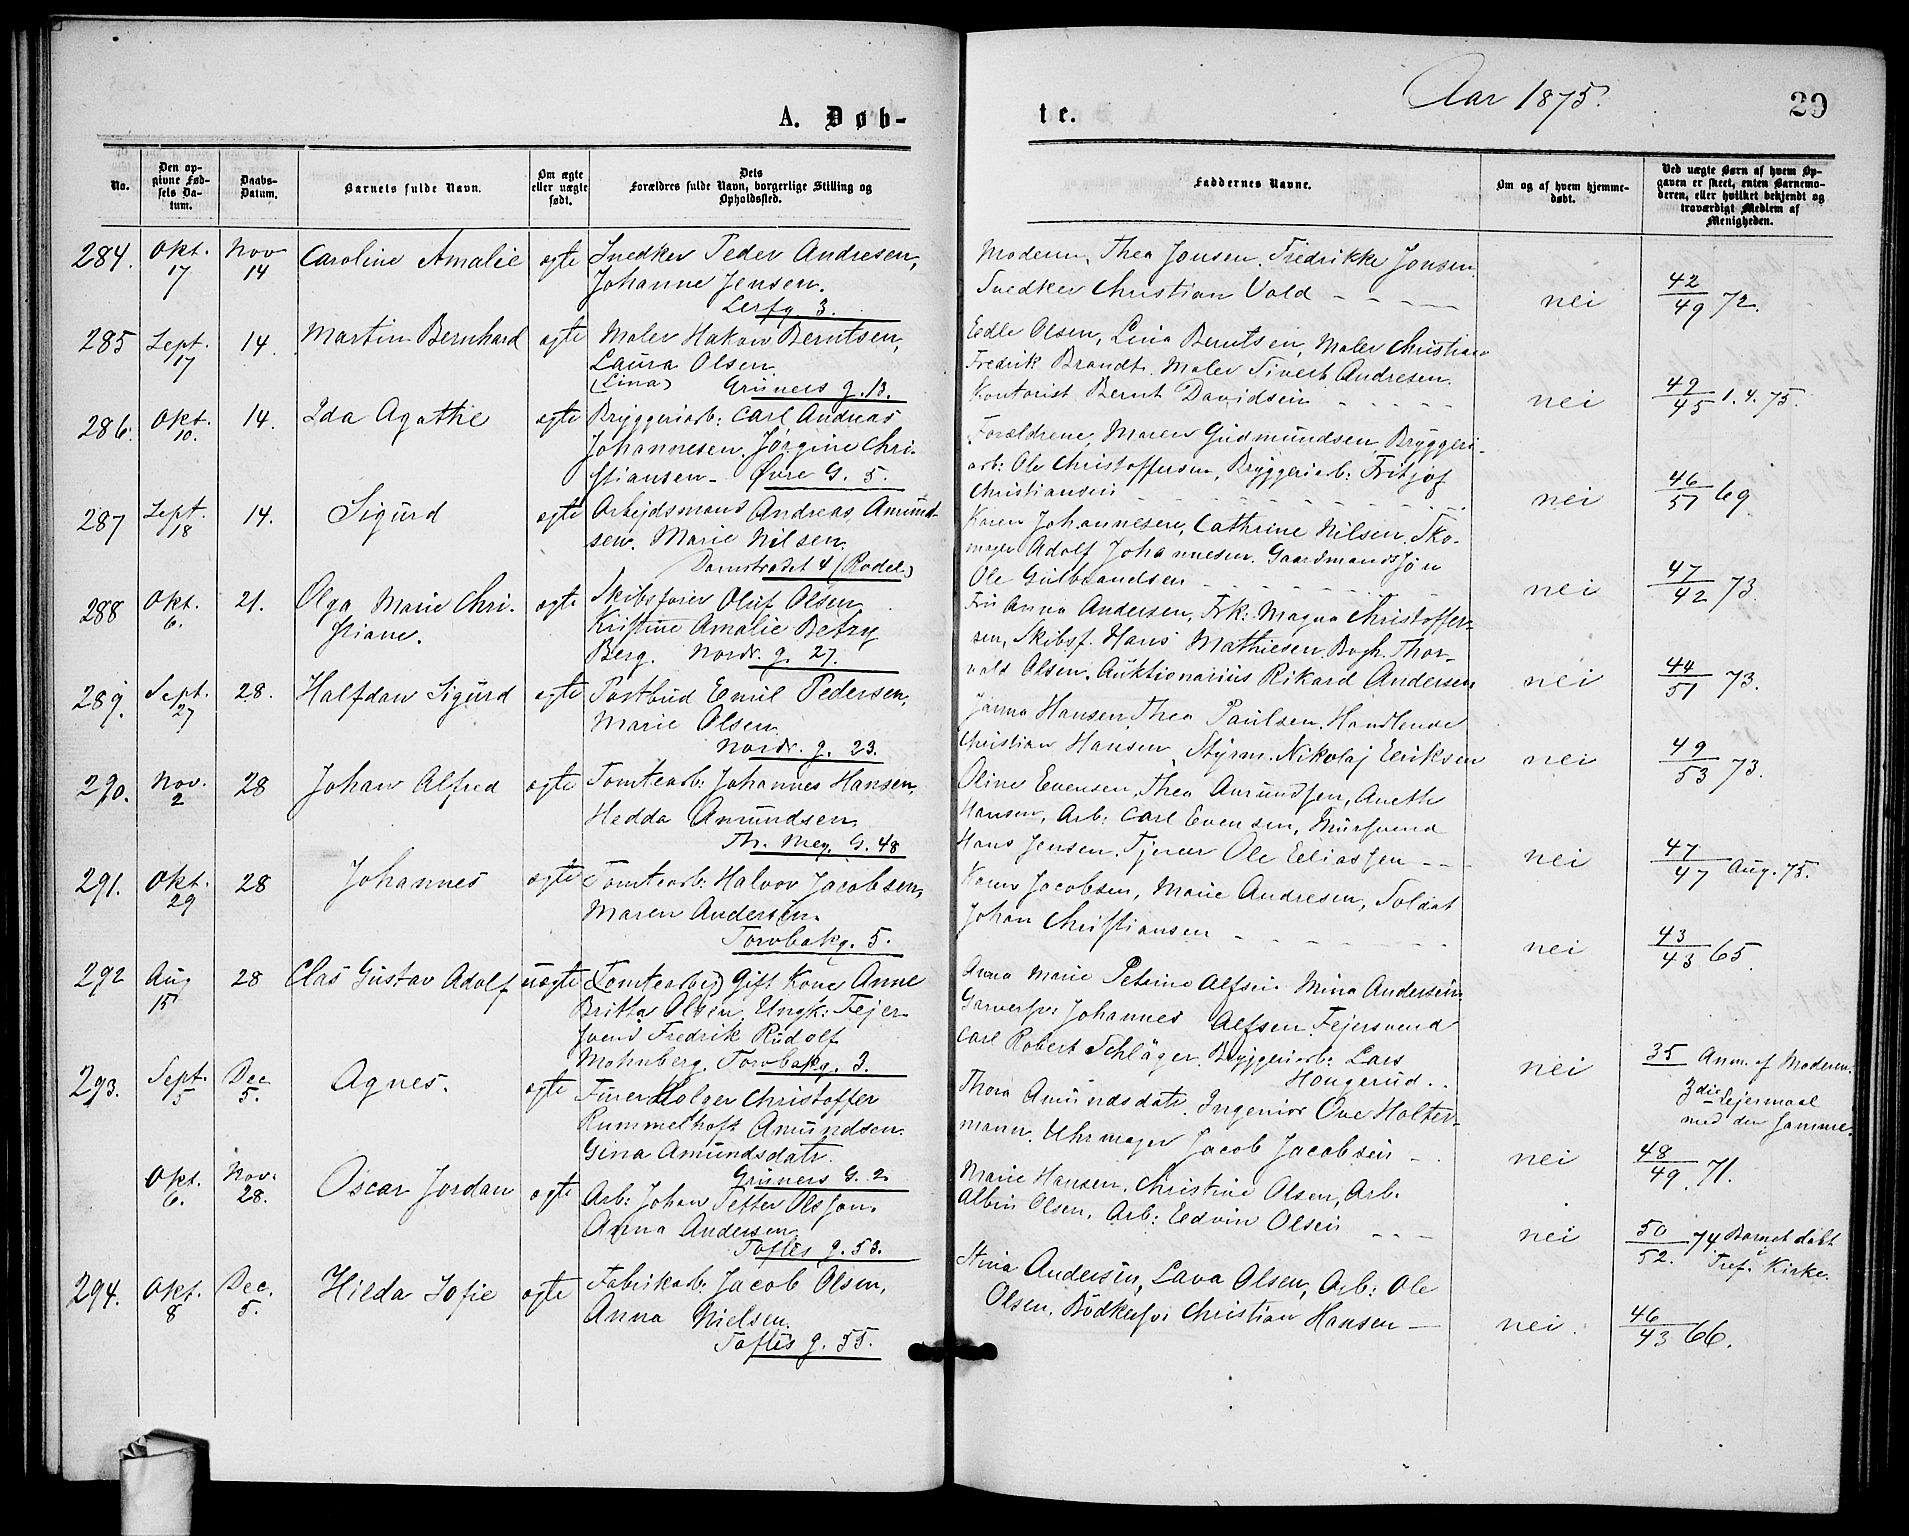 A. Døb-
No.
Den op-
givne Fød-
sels Da-
tum.
Daabs-
Datum.
Barnets fulde Navn.
Om ægte
eller uægte
født.
Dets
Forældres fulde Navn, borgerlige Stilling og
Opholdssted.
284. Okt. 17 Nov 14 Caroline Amalie ægte Snedker Peder Andresen,
Johanne Jensen.
Lerfg. 3.
285 Sept. 17 14. Martin Bernhard ægte Maler Hakon Berntsen,
Laura Olsen.
(Lina) Gruners g. 13.
286. Okt. 10. 14. Ida Agathe ægte Bryggeriarb: Carl Andreas
Johannesen. Jørgine Chri-
stiansen - Øvre G. 5.
287 Sept. 18 14. Sigurd ægte Arbejdsmand Andreas Amund-
sen. Marie Nilsen.
Damstrædet 4 (Rodel.)
288 Okt. 6. 21. Olga Marie Chri- ægte Skibsfører Oluf Olsen
stiane. Kristine Amalie Betzy
Berg. Nordr. g. 27.
289. Sept. 27 28. Halfdan Sigurd ægte Postbud Emil Pedersen,
Marie Olsen.
Nordr. g. 23.
290. Nov. 2 28 Johan Alfred ægte Tomtearb: Johannes Hansen,
Hedda Amundsen.
Th. Mey. G. 48
291. Okt. 29 28 Johannes ægte Tomtearb: Halvor Jacobsen,
Maren Andersen.
Torvbakg. 5.
292 Aug 15 28 Clas Gustav Adolf uægte (Tomtearbej) Gift Kone Anne
Britta Olsen, Ungk: Fejer-
svend Fredrik Rudolf
Mohnberg. Torvbakg. 3.
293. Sept. 5 Dec 5. Agnes. ægte Furer Holger Christoffer
Rummelhoff Amundsen.
Gina Amundsdatr.
Gruners G. 2
Okt. 6. Nov. 28. Oscar Jordan ægte Arb: Johan Petter Olsson.
Anna Andersen.
Toftes g. 53.
294. Okt. 8 Dec. 5. Hilda Sofie ægte Fabrikarb. Jacob Olsen,
Anna Nielsen.
Toftes g. 55.
te.
Aar 1875.
29
Faddernes Navne.
Om og af hvem hjemme-
døbt.
Ved uægte Børn af hvem Op-
gaven er skeet, enten Barnemo-
deren, eller hvilket bekjendt og
troværdigt Medlem af
Menigheden.
Moderen, Thea Jonsen. Fredrikke Jonsen.
Snedker Christian Vold - - - - nei 42/49 72.
Edle Olsen, Lina Berntsen, Maler Christian
Fredrik Brandt. Maler Sivert Andresen.
Kontorist Bernt Davidsen - - - - nei 49/45 1. 4. 75.
Forældrene, Maren Gudmundsen, Bryggeri-
arb: Ole Christoffersen, Bryggeriarb: Fritjof
Christiansen - - - - nei 46/51 69
Karen Johannesen, Cathrine Nilsen, Sko-
mager Adolf Johannesen. Gaardmandssøn
Ole Gulbrandsen - - - - nei 47/42 73.
Fru Anna Andersen, Frk: Magna Christoffer-
sen, Skibsf. Hans Mathiesen. Bogh. Thor-
vald Olsen. Auktionarius Rikard Andersen nei 44/51 73.
Janna Hansen, Thea Paulsen. Handlende
Christian Hansen, Styrm. Nikolaj Eriksen nei 49/53 73.
Oline Evensen, Thea Amundsen, Aneth
Hansen, Arb: Carl Evensen, Mursvend
Hans Jensen. Tjener Ole Eeliassen - - nei 47/47 Aug. 75.
Karen Jacobsen, Marie Andresen, Soldat
Johan Christiansen - - - - nei 43/43 65.
Anna Marie Petrine Alfsen. Mina Andersen.
Garversv: Johannes Alfsen. Fejersvend
Carl Robert Schläger. Bryggeriarb: Lars
Hougerud. nei 35 Anm. af Moderen.
3die Lejermaal
med den samme.
Thora Amundsdatr. Ingeniør Ove Holter-
mann. Uhrmager Jacob Jacobsen - nei 48/49. 71.
Marie Hansen. Christine Olsen, Arb.
Albin Olsen, Arb: Eedvin Olsen - - - nei 50/52. 74 Barnet døbt
i Tref. Kirke.
Stina Andersen, Lava Olsen, Arb: Ole
Olsen. Bödkersv: Christian Hansen - nei. 46/43 66.